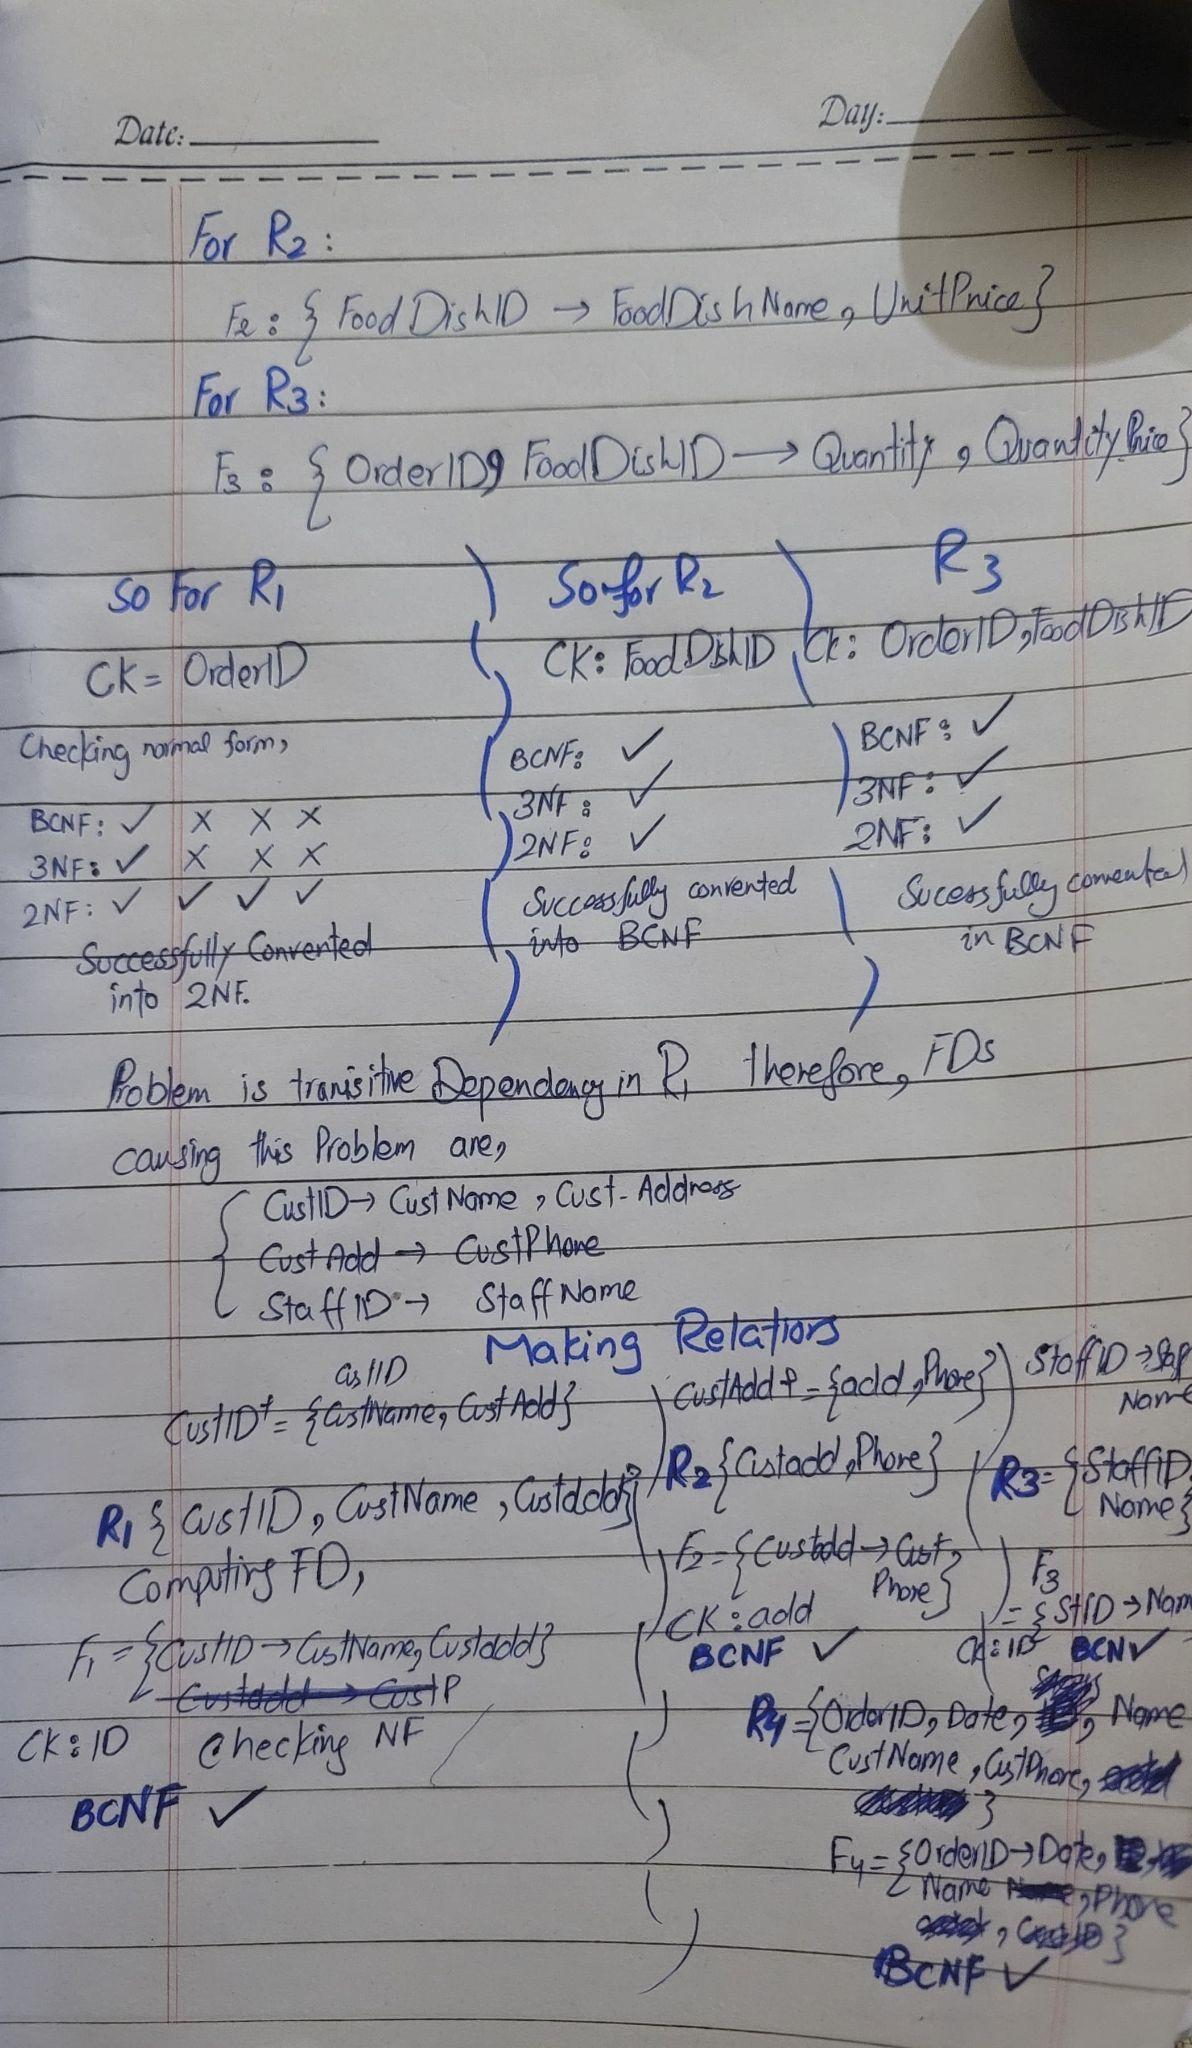 Date:
Day:
For R2:
F2: { FoodDishID → FoodDishName, UnitPrice}
For R3:
F3: { OrderID, FoodDishID → Quantity, QuantityPrice}
So For R1
CK = OrderID
Checking normal form,
BCNF: ✓ × × ×
3NF: ✓ × × ×
2NF: ✓ ✓ ✓ ✓
Successfully Convented
into 2NF.
So for R2
CK: FoodDishID
BCNF: ✓
3NF: ✓
2NF: ✓
Successfully convented
into BCNF
R3
CK: OrderID, FoodDishID
BCNF: ✓
3NF: ✓
2NF: ✓
Sucessfully convented
in BCNF
Problem is transitive Dependency in R1 therefore, FDs
causing this Problem are,
CustID → CustName, Cust-Address
CustAdd → CustPhone
StaffID → StaffName
Making Relations
CustID
CustID+ = {CustName, CustAdd}
R1 { CustID, CustName, Custadd}
Computing FD,
F1 = {CustID → CustName, Custadd}
Custadd → CustP
CK: ID Checking NF
BCNF ✓
CustAdd+ = {add, Phone}
R2 {Custadd, Phone}
F2 = {Custadd → Cust
Phone}
CK: add
BCNF ✓
StaffID →
Name
R3 = {StaffID,
Name}
F3
= {StID → Nam
CK: ID BCN ✓
R4 = {OrderID, Date, Name
CustName, CustPhone,
}
F4 = {OrderID → Date,
Name, Phone
, }
BCNF ✓